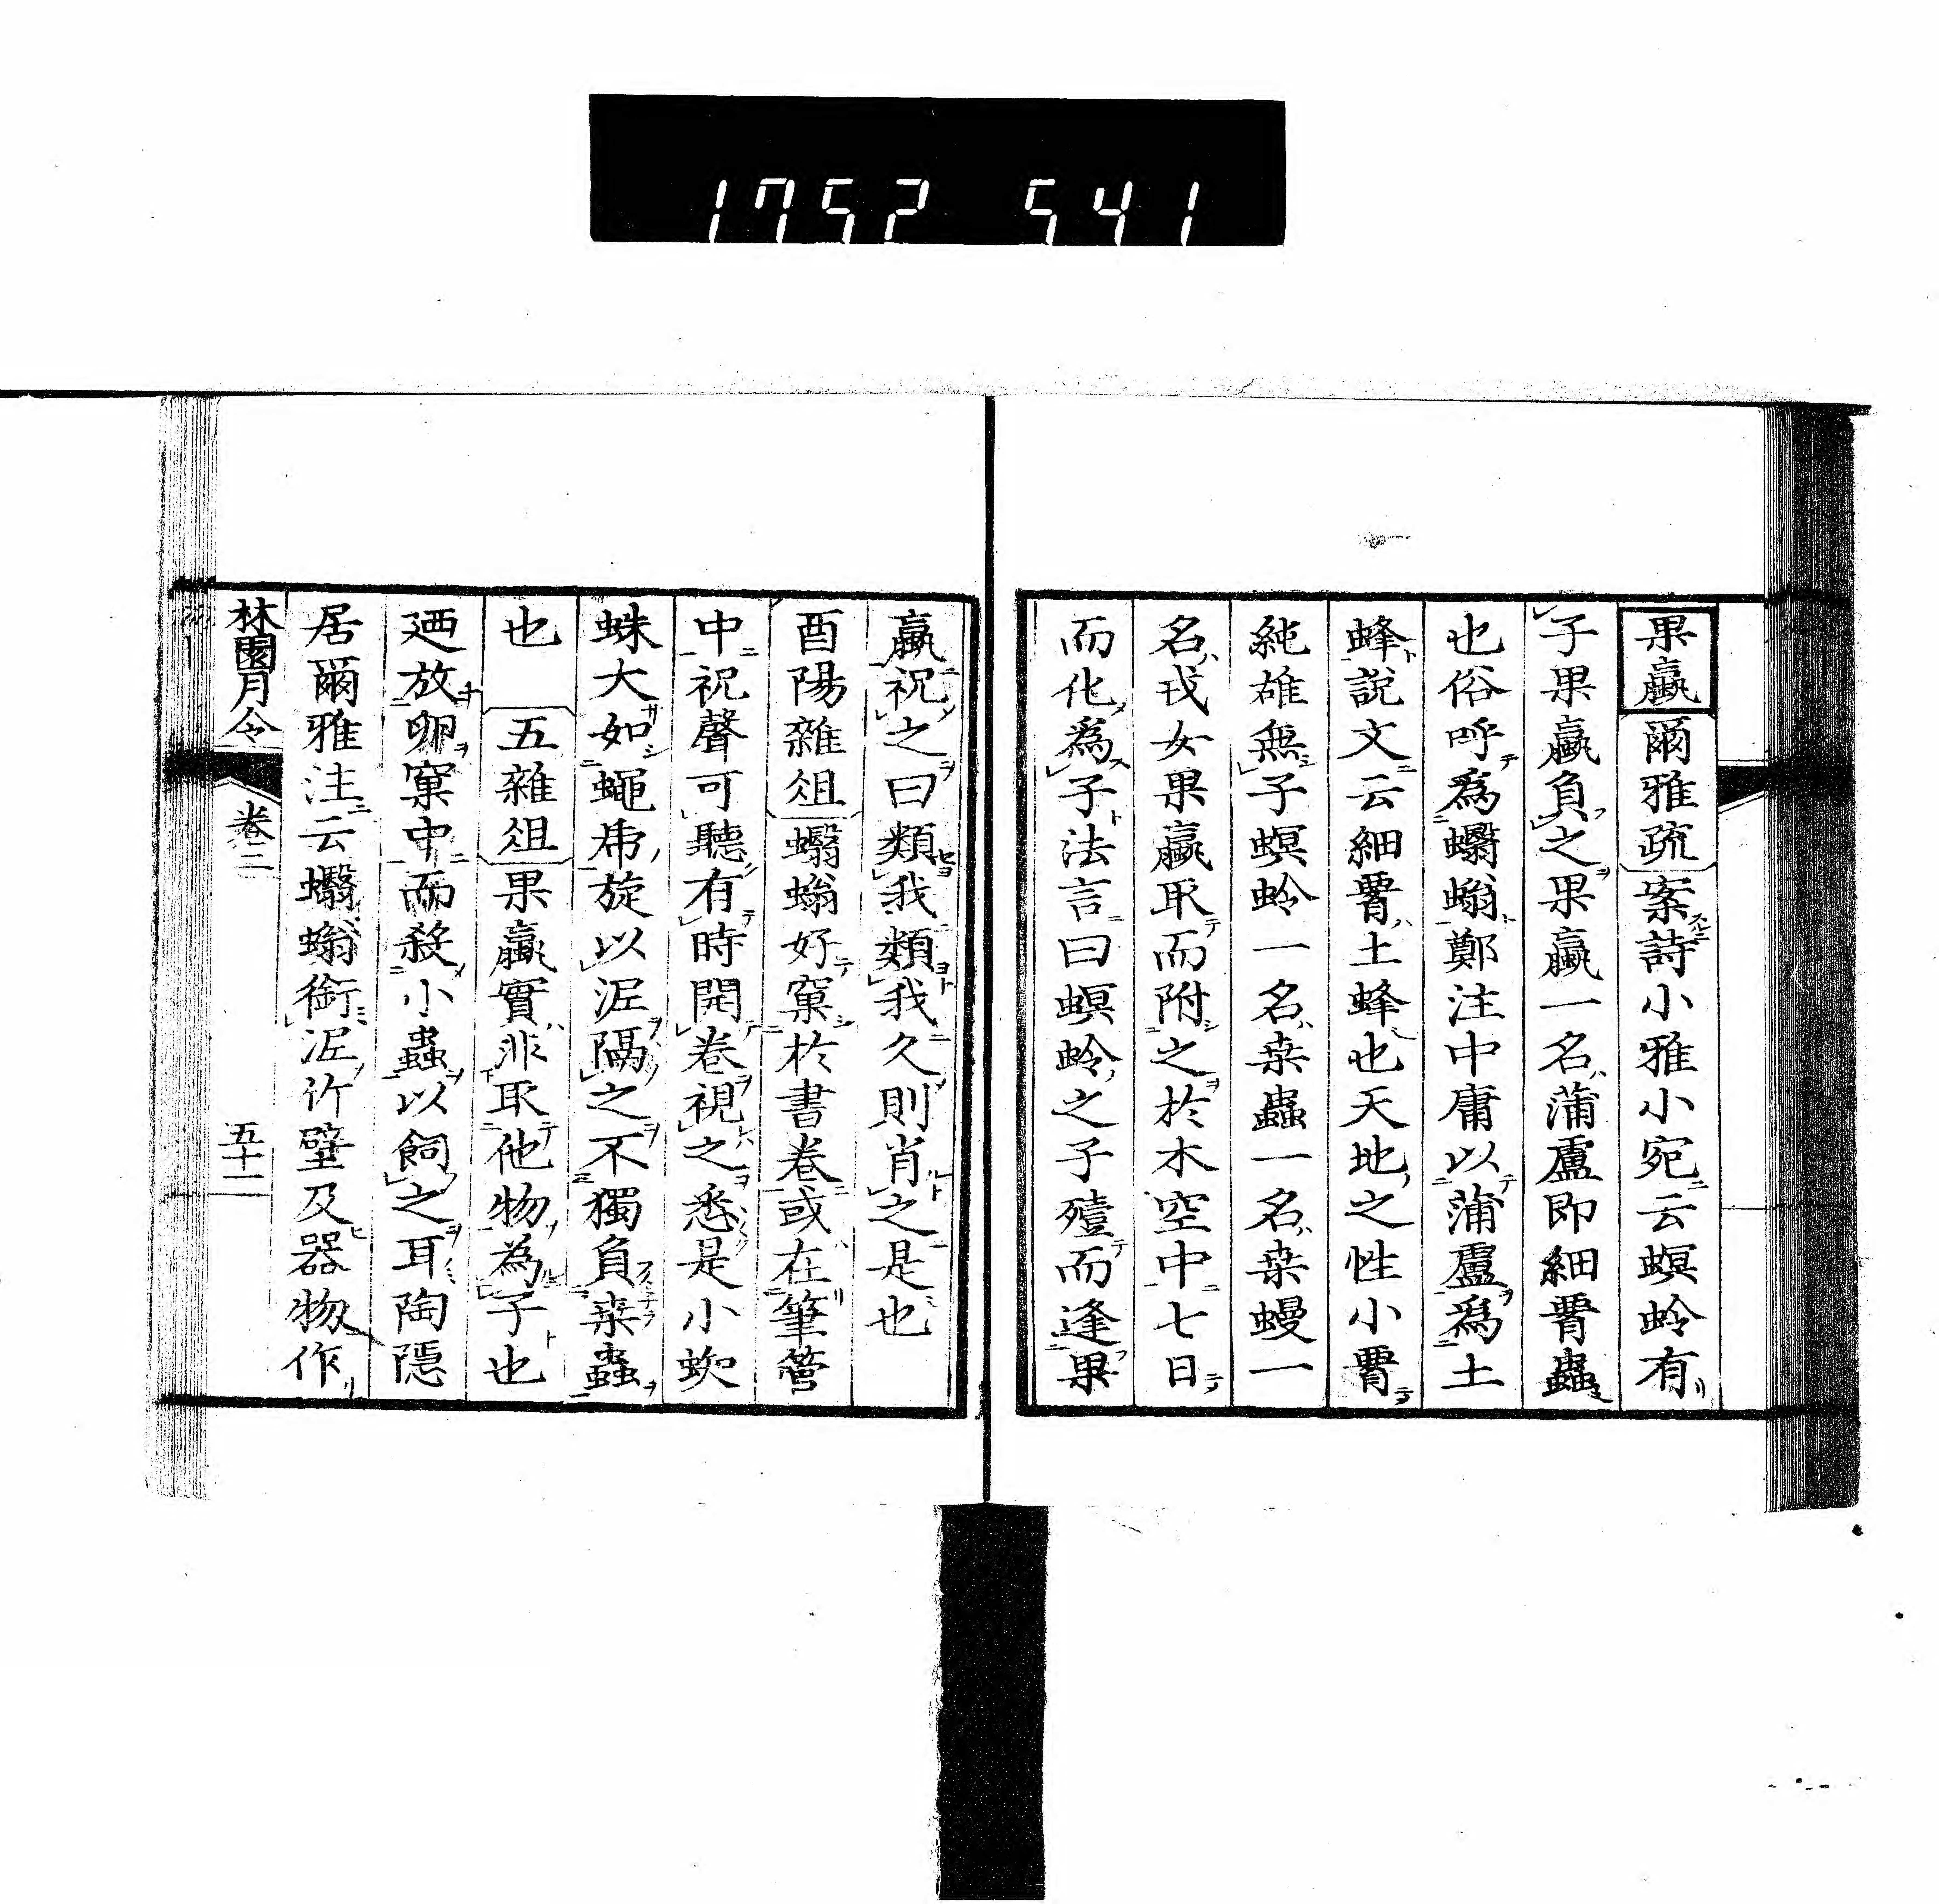 1752 541
果蠃爾雅疏案詩小雅小宛云螟蛉有
子果蠃負之果蠃一名蒲盧即細𦝫蟲
也俗呼爲蠮螉鄭注中庸以蒲盧爲土
蜂說文云細𦝫土蜂也天地之性小𦝫
純雄無子螟蛉一名桒蟲一名桒蟃一
名戎女果蠃取而附之於木空中七日
而化爲子法言曰螟蛉之子殪而逢果
蠃祝之曰類我類我久則肖之是也
酉陽雜俎蠮螉好窠於書卷或在筆管
中祝聲可聽有時開卷視之悉是小蜘
蛛大如蠅虎旋以泥隔之不獨負桒蟲
也 五雜俎果蠃實非取他物為子也
廼放卵窠中而殺小蟲以飼之耳陶隱
居爾雅注云蠮螉銜泥竹壁及器物作
林園月令 卷三 五十二